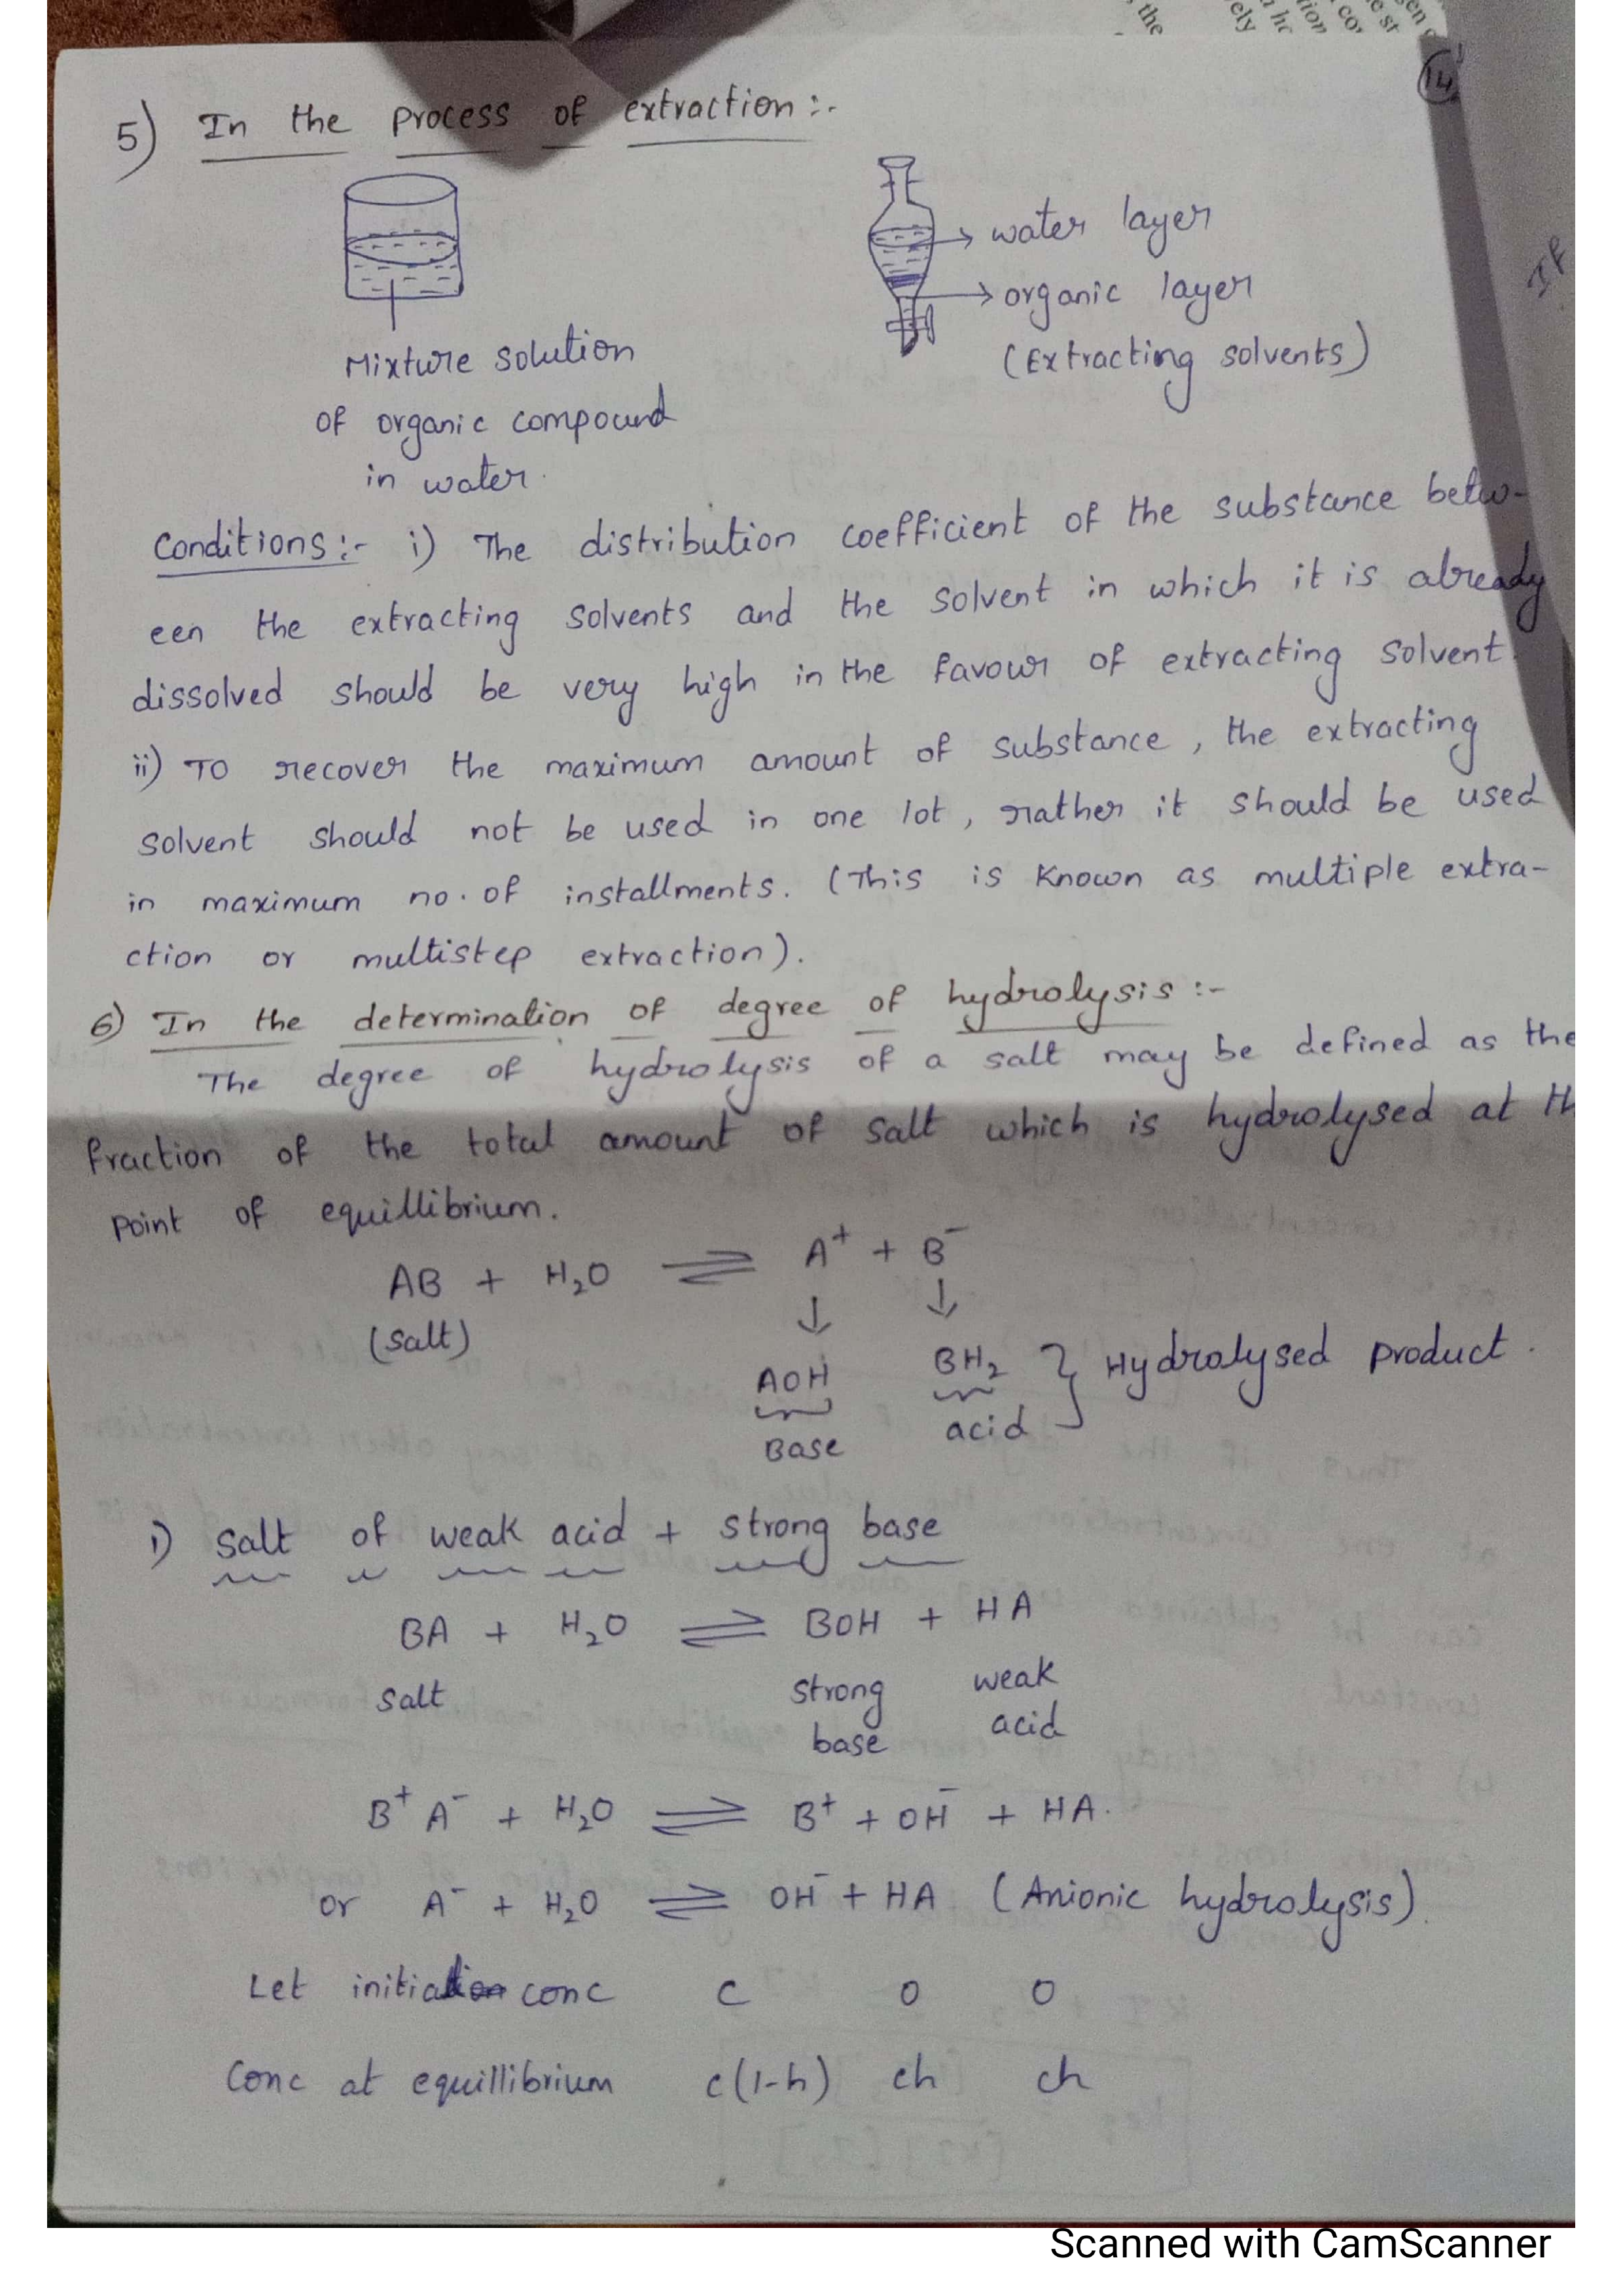 the
ely
14
5) In the process of extraction :-
water layer
organic layer
(Extracting solvents)
Mixture solution
of organic compound
in water.
If
Conditions :- i) The distribution coefficient of the substance betw-
een the extracting solvents and the solvent in which it is already
dissolved should be very high in the favour of extracting solvent.
ii) To recover the maximum amount of substance, the extracting
solvent should not be used in one lot, rather it should be used
in maximum no. of installments. (This is known as multiple extra-
ction or multistep extraction).
6) In the determination of degree of hydrolysis :-
The degree of hydrolysis of a salt may be defined as the
fraction of the total amount of salt which is hydrolysed at th
point of equillibrium.
AB + H₂O ⇌ A⁺ + B⁻
(salt) ↓ ↓
AOH BH₂ } Hydrolysed product.
Base acid
i) salt of weak acid + strong base
BA + H₂O ⇌ BOH + HA
salt strong weak
base acid
B⁺ A⁻ + H₂O ⇌ B⁺ + OH⁻ + HA.
or A⁻ + H₂O ⇌ OH⁻ + HA (Anionic hydrolysis).
Let initial conc c 0 0
Conc at equillibrium c(1-h) ch ch
Scanned with CamScanner